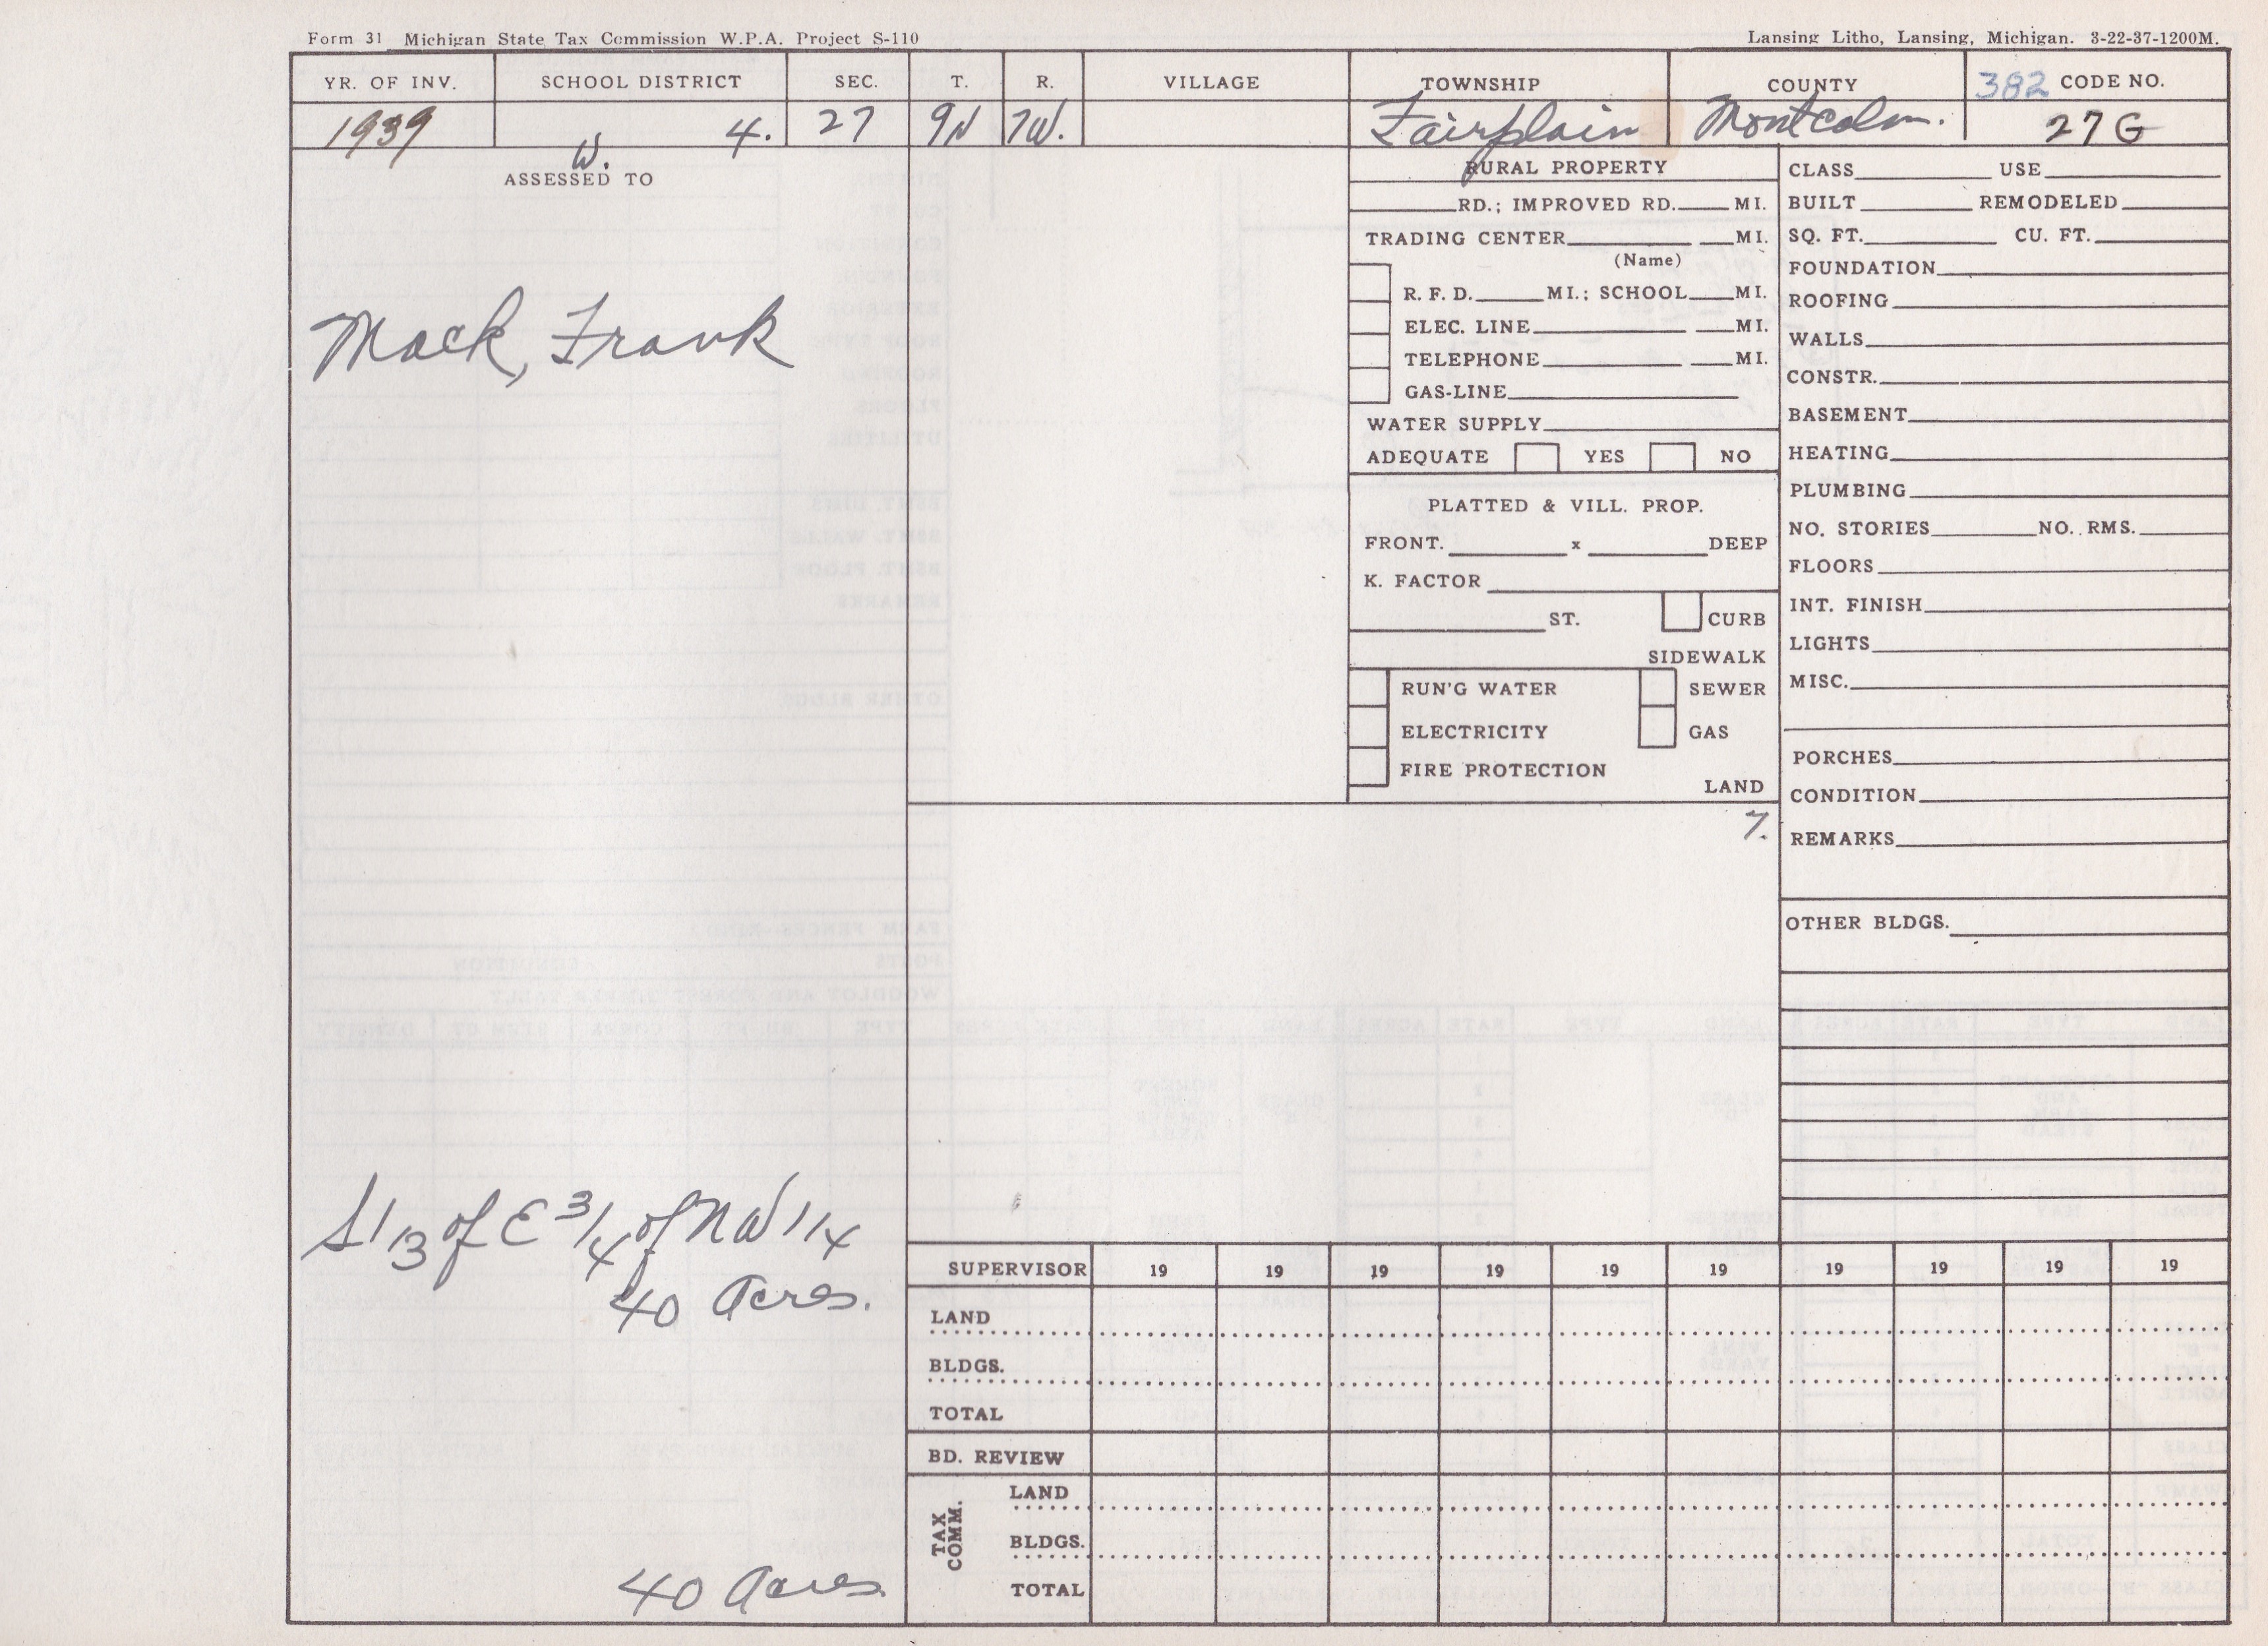 Form 31 Michigan State Tax Commission W.P.A. Project S-110
Lansing Litho, Lansing, Michigan. 3-22-37-1200M.
YR. OF INV. SCHOOL DISTRICT SEC. T. R. VILLAGE TOWNSHIP COUNTY 382 CODE NO.
1939 4. 27 9N 7W. Fairplain Montcalm. 27 G
W.
ASSESSED TO
Mack, Frank
S 1/3 of E 3/4 of NW 1/4
40 Acres.
40 Acres
RURAL PROPERTY
RD.; IMPROVED RD. MI.
TRADING CENTER MI.
(Name)
R. F. D. MI.; SCHOOL MI.
ELEC. LINE MI.
TELEPHONE MI.
GAS-LINE
WATER SUPPLY
ADEQUATE YES NO
PLATTED & VILL. PROP.
FRONT. x DEEP
K. FACTOR
ST. CURB
SIDEWALK
RUN'G WATER SEWER
ELECTRICITY GAS
FIRE PROTECTION
LAND
7.
CLASS USE
BUILT REMODELED
SQ. FT. CU. FT.
FOUNDATION
ROOFING
WALLS
CONSTR.
BASEMENT
HEATING
PLUMBING
NO. STORIES NO. RMS.
FLOORS
INT. FINISH
LIGHTS
MISC.
PORCHES
CONDITION
REMARKS
OTHER BLDGS.
SUPERVISOR 19 19 19 19 19 19 19 19 19 19
LAND
BLDGS.
TOTAL
BD. REVIEW
TAX COMM.
LAND
BLDGS.
TOTAL